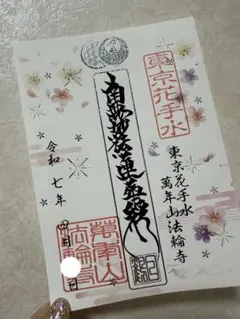 東京花手水
東京花手水
萬年山法輪寺
南無妙法蓮華経
令和七年
四月
日